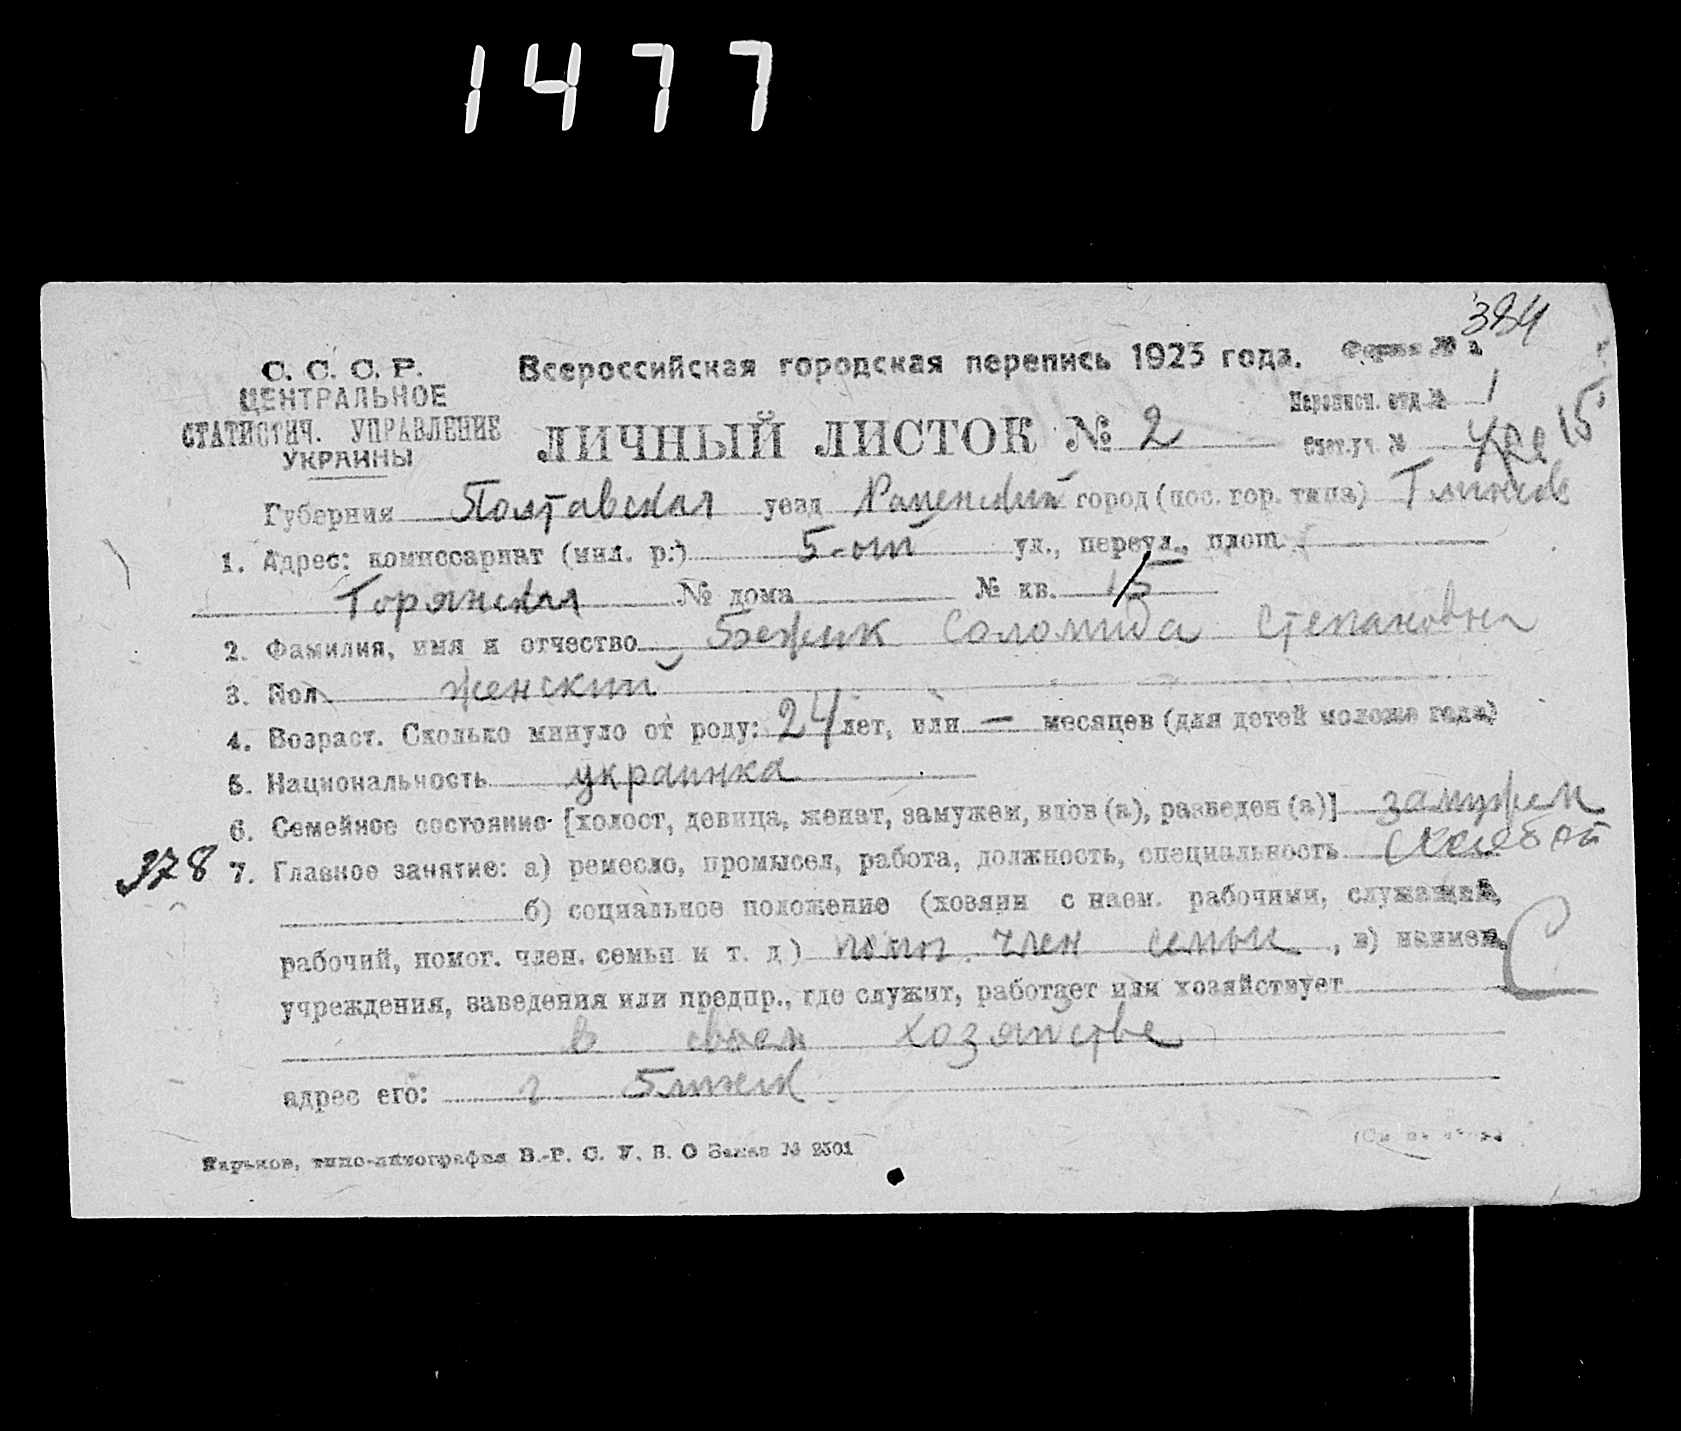 1477
384
С. С. С. Р.
ЦЕНТРАЛЬНОЕ
СТАТИСТИЧ. УПРАВЛЕНИЕ
УКРАИНЫ
Всероссийская городская перепись 1923 года.
Форма №
ЛИЧНЫЙ ЛИСТОК № 2
Переписн. отд. № 1
Счет. уч. № 15
Губерния Полтавская уезд Роменский город (пос. гор. типа)
1. Адрес: комиссариат (мил. р.) 5-ой ул., переул., площ.
№ дома № кв. 15
2. Фамилия, имя и отчество Соломида Степановна
3. Пол женский
4. Возраст. Сколько минуло от роду: 24 лет, или — месяцев (для детей моложе года)
5. Национальность украинка
6. Семейное состояние [холост, девица, женат, замужем, вдов (а), разведен (а)] замужем
378 7. Главное занятие: а) ремесло, промысел, работа, должность, специальность
б) социальное положение (хозяин с наем. рабочими, служащий,
рабочий, помог. член. семьи и т. д) пом. член семьи, в) наимен.
учреждения, заведения или предпр., где служит, работает или хозяйствует
в своем хозяйстве
адрес его:
Харьков, типо-литография В.-Р. С. У. В. О Заказ № 2301